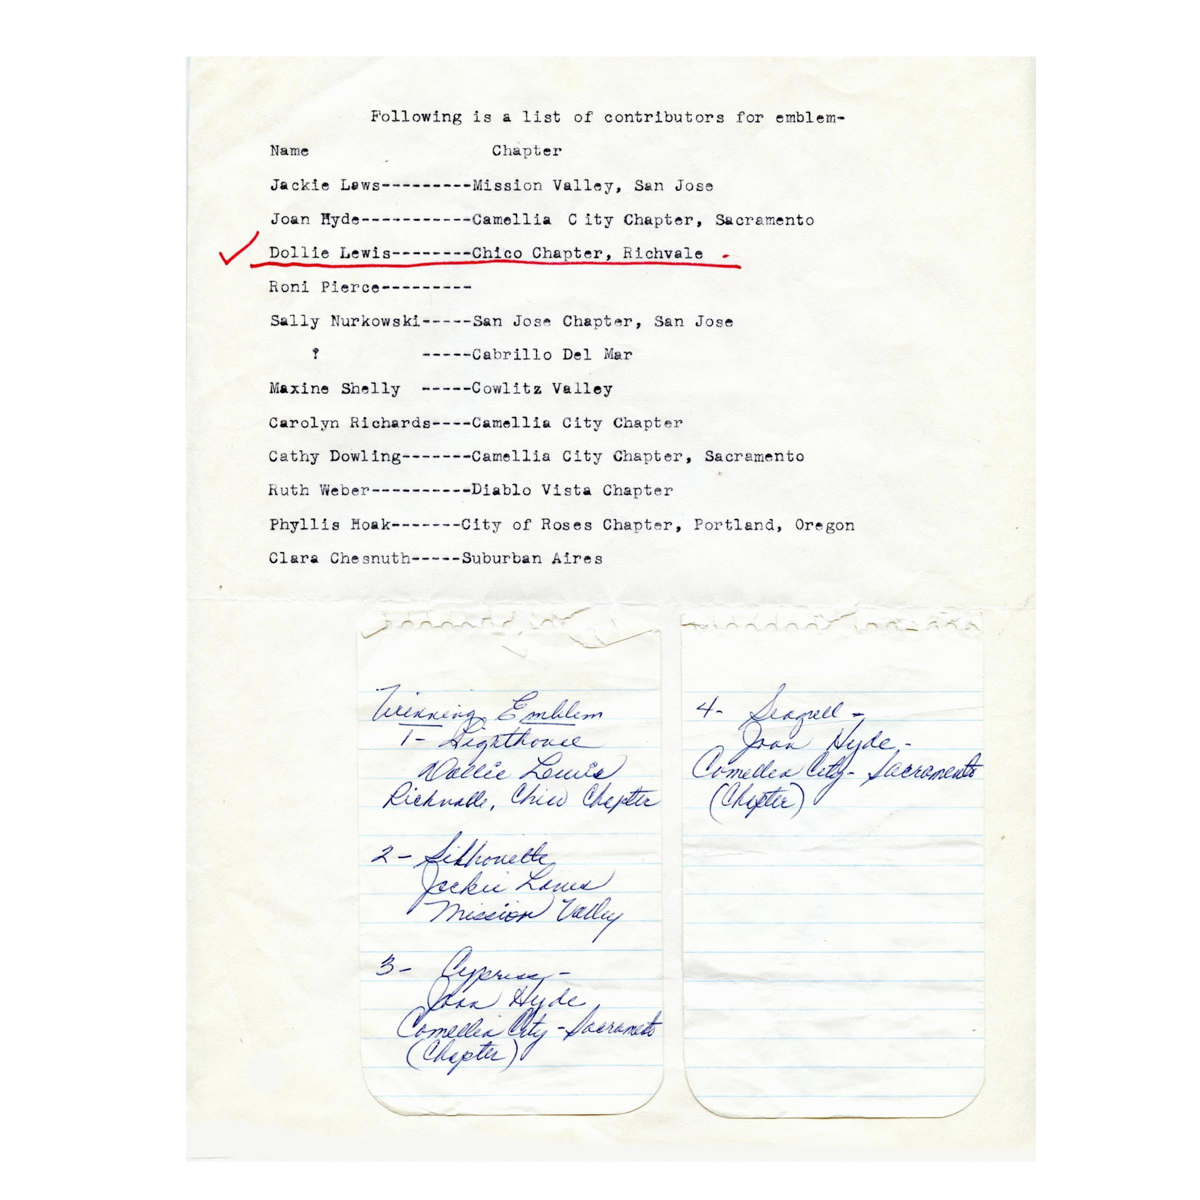 Following is a list of contributors for emblem-
Name Chapter
Jackie Laws---------Mission Valley, San Jose
Joan Hyde-----------Camellia C ity Chapter, Sacramento
Dollie Lewis--------Chico Chapter, Richvale
Roni Pierce---------
Sally Nurkowski-----San Jose Chapter, San Jose
? -----Cabrillo Del Mar
Maxine Shelly -----Cowlitz Valley
Carolyn Richards----Camellia City Chapter
Cathy Dowling-------Camellia City Chapter, Sacramento
Ruth Weber----------Diablo Vista Chapter
Phyllis Hoak-------City of Roses Chapter, Portland, Oregon
Clara Chesnuth-----Suburban Aires
Winning Emblem
1- Lighthouse
Dollie Lewis
Richvale, Chico Chapter
2- Silhouette
Jackie Laws
Mission Valley
3- Cypress-
Joan Hyde
Camellia City-Sacramento
(Chapter)
4- Seagull-
Joan Hyde-
Camellia City-Sacramento
(Chapter)